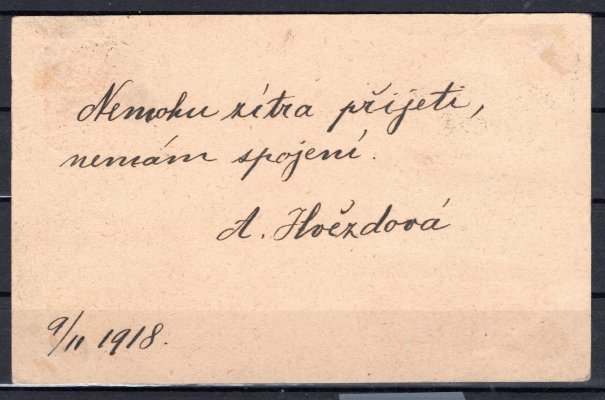 Nemohu zítra přijeti,
nemám spojení.
A. Hvězdová
9/11 1918.